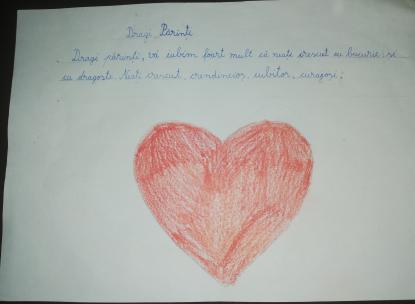 Dragi Părinti
Dragi părinți, vă iubim foart mult că neati crescut cu bucurie si
cu dragoste. Neati crescut, crendincios, iubitor, curagosi;